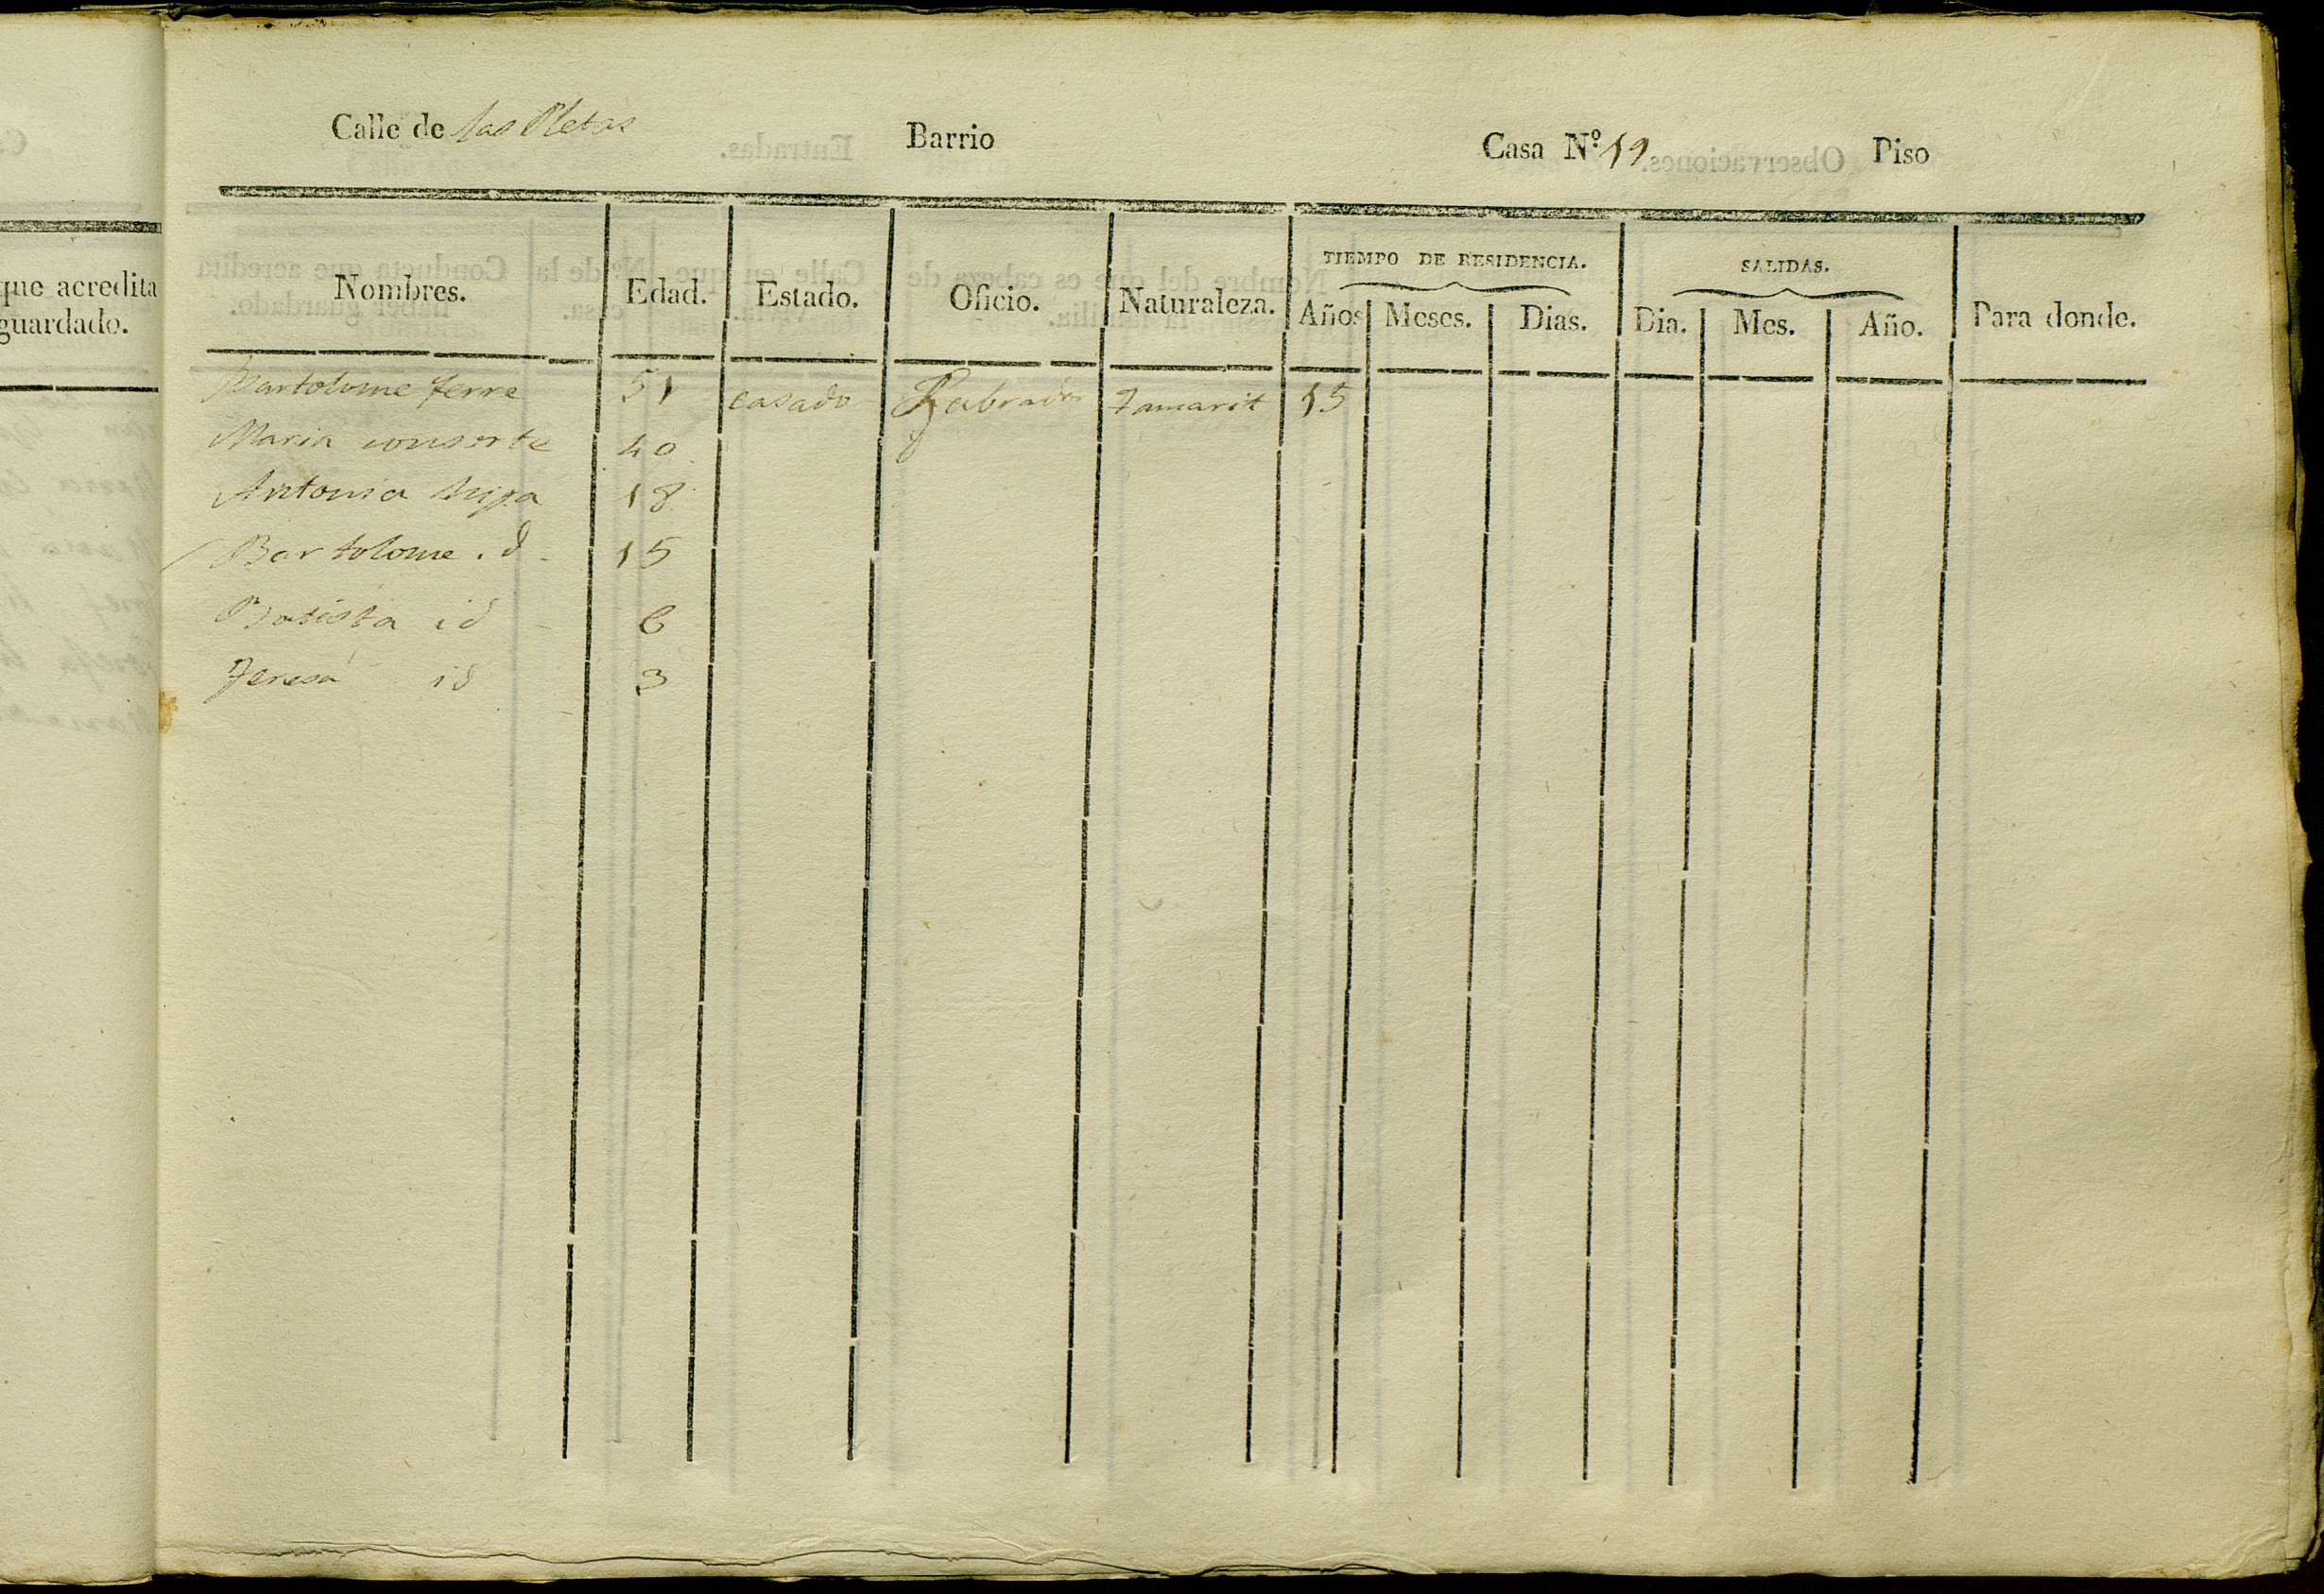 que acredita
guardado.
Calle de las Pletas Barrio Casa Nº 19 Piso
Nombres. Edad. Estado. Oficio. Naturaleza. TIEMPO DE RESIDENCIA. SALIDAS. Para donde.
Años Meses. Dias. Dia. Mes. Año.
Bartolome ferre 51 casado Labrador Tamarit 15
Maria consorte 40
Antonia hija 18
Bartolome id 15
Batista id 6
Teresa id 3